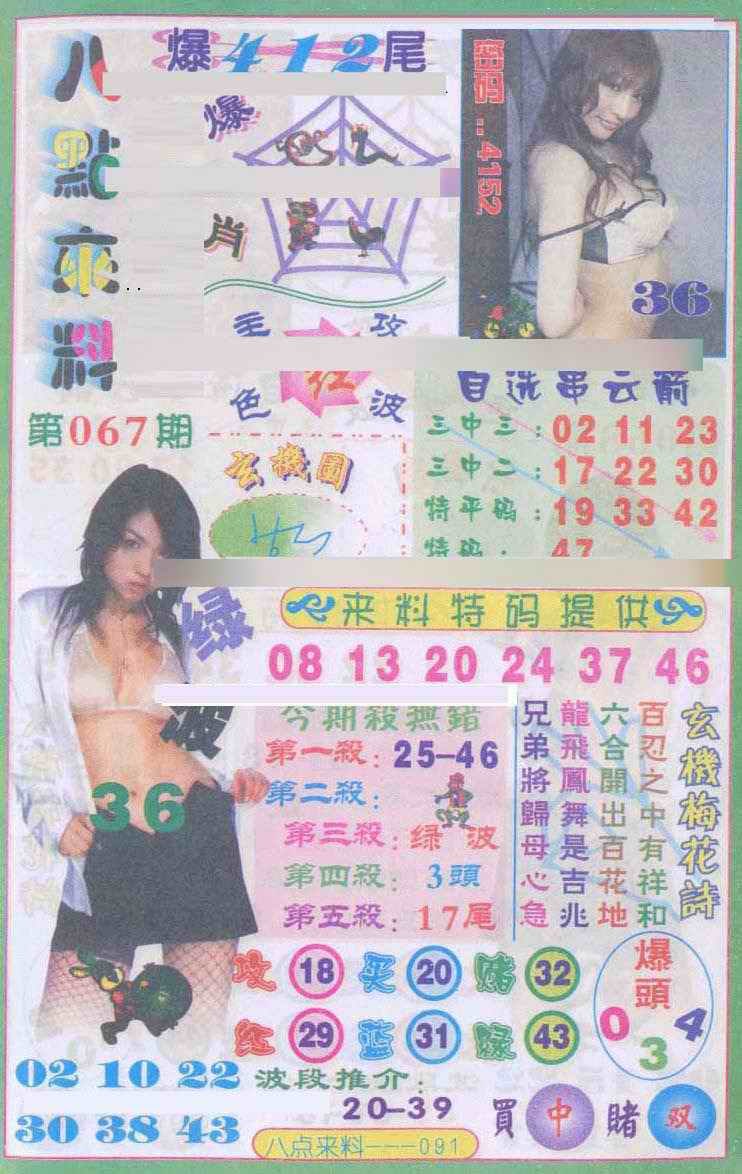 爆412尾
八點來料
爆
肖
密..4152
36
主攻
红
色波
第067期
玄機圖
自选串云箭
三中三:02 11 23
三中二:17 22 30
特平码:19 33 42
特码:47
来料特码提供
绿波
08 13 20 24 37 46
36
今期殺無錯
第一殺:25-46
第二殺:
第三殺:绿波
第四殺:3頭
第五殺:17尾
玄機梅花詩
百忍之中有祥和
六合開出百花地
龍飛鳳舞是吉兆
兄弟將歸母心急
攻18买20赌32
红29蓝31绿43
爆頭
0 3 4
02 10 22
30 38 43
波段推介:
20-39
買中賭双
八点来料---091